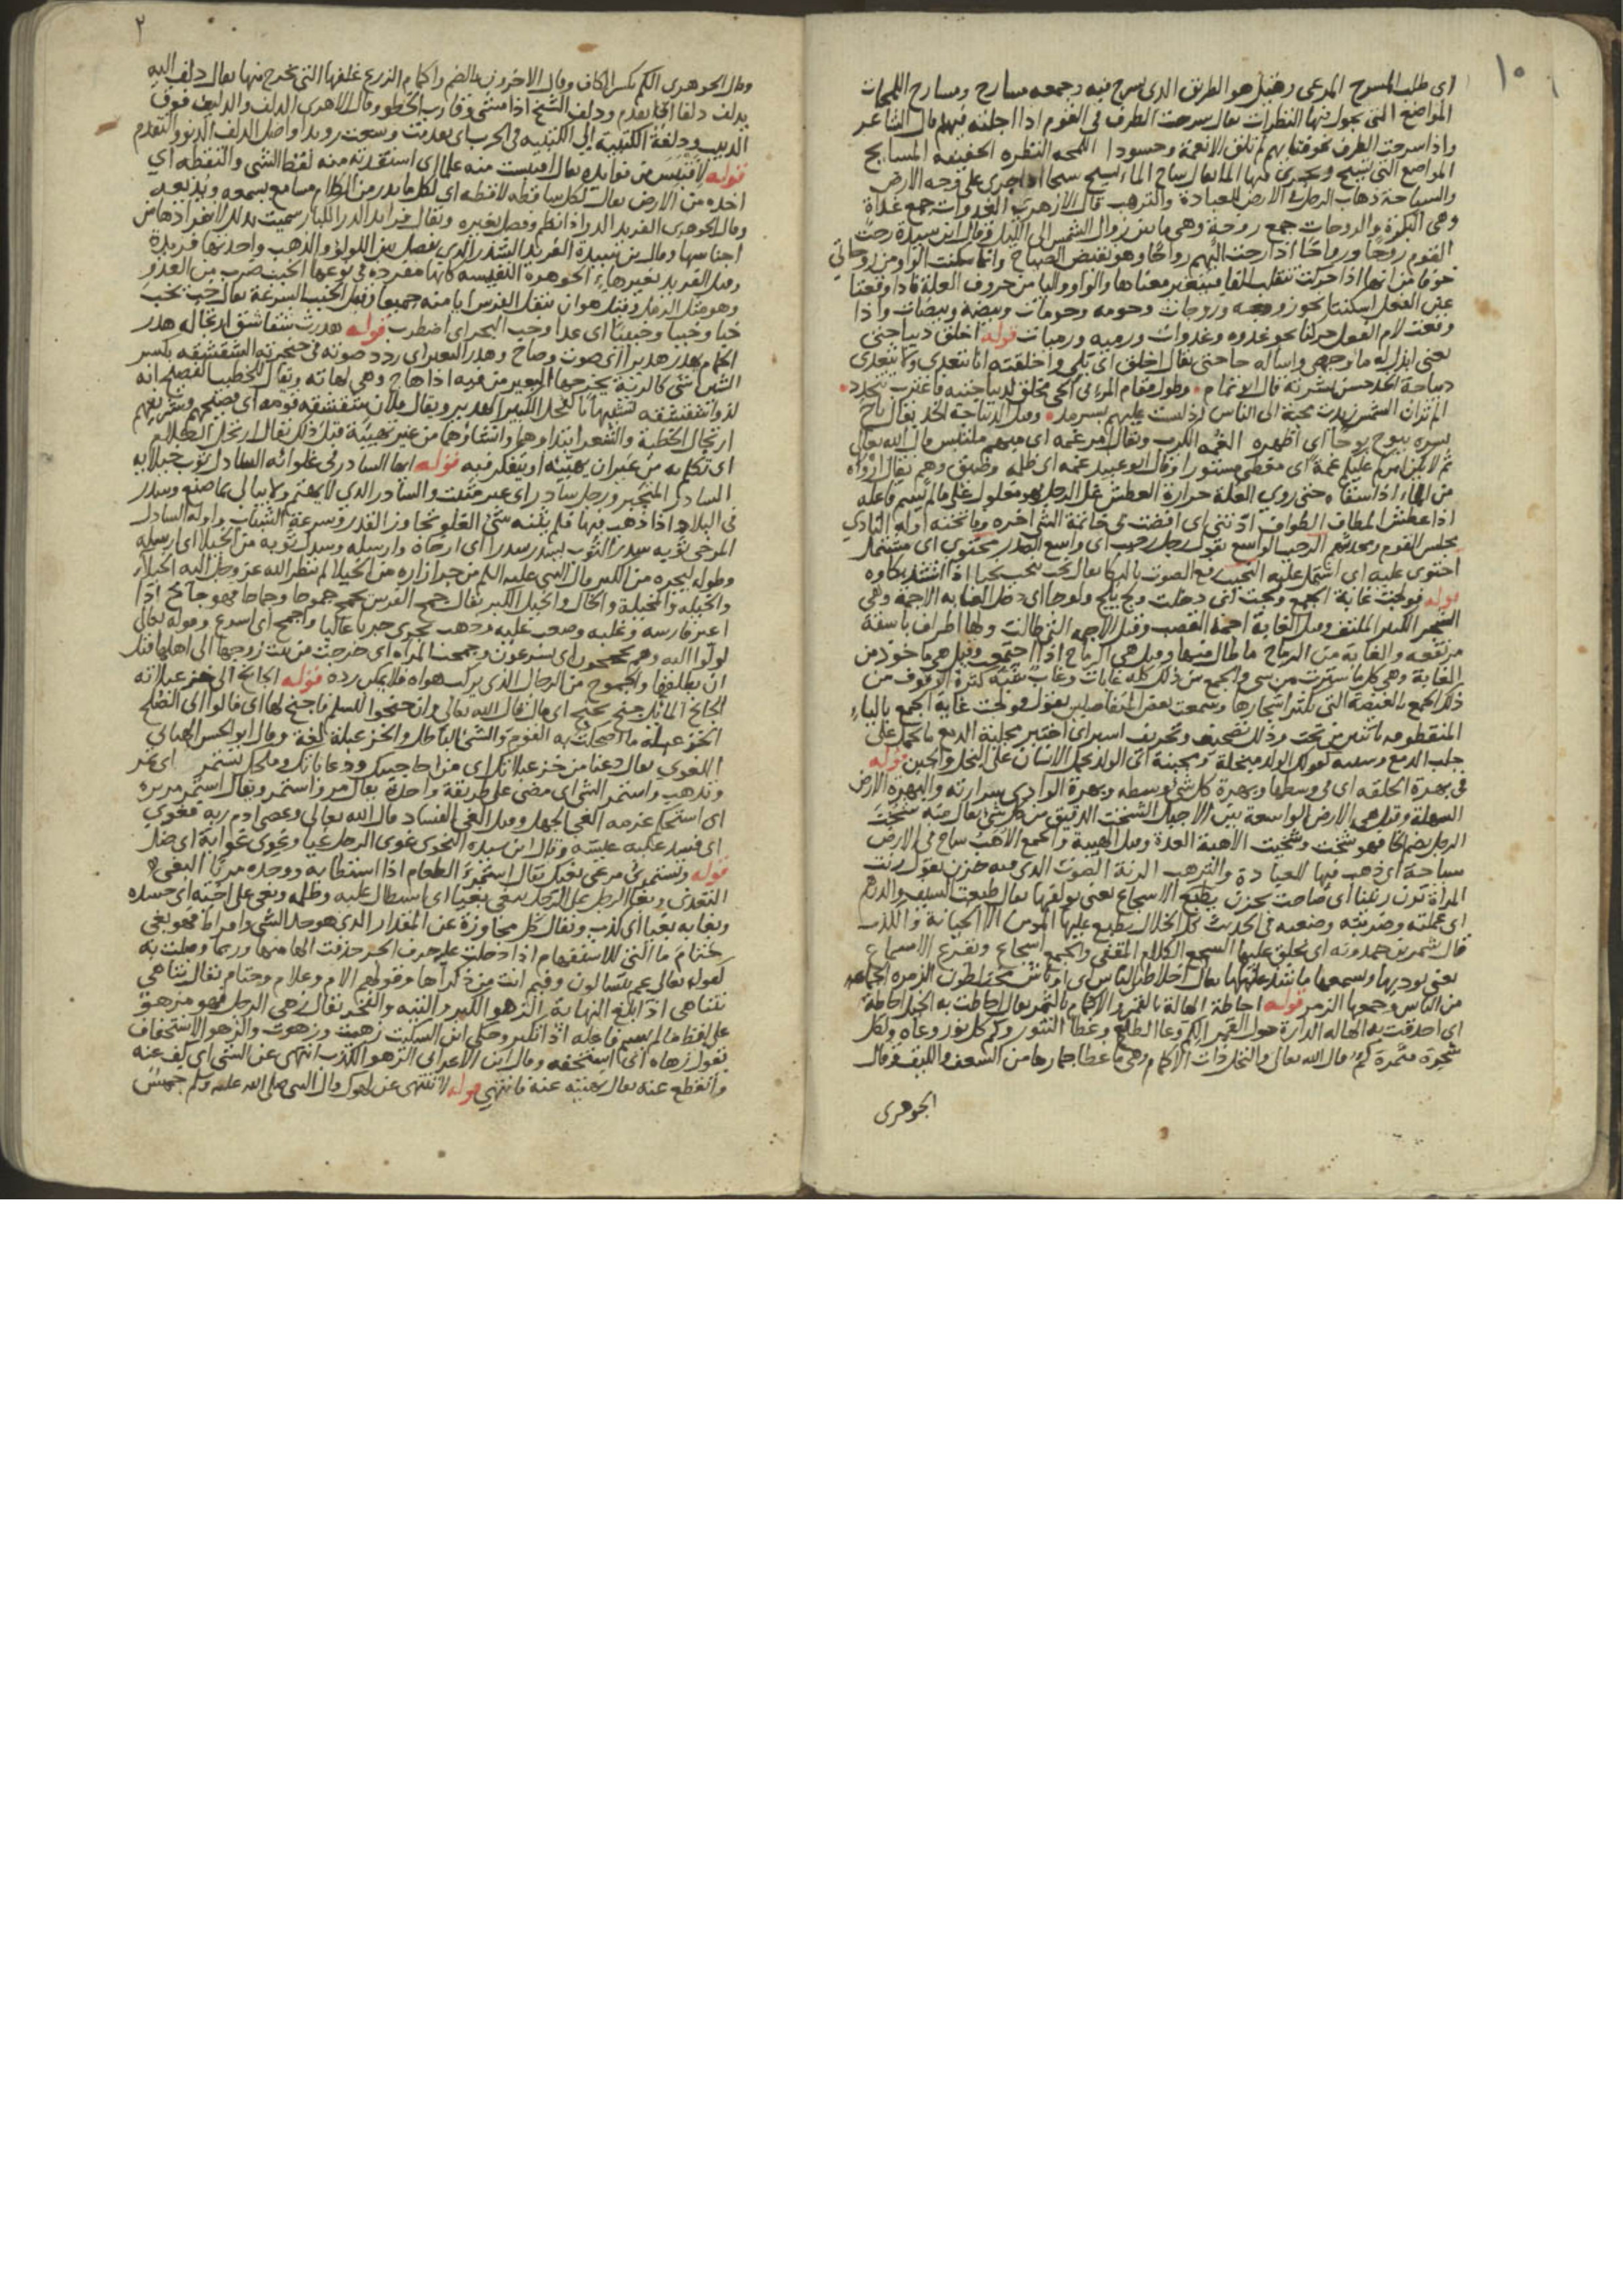 ١٠
اى طلب المسرح المرعى وقيل هو الطريق الذى يسرح فيه وجمعه مسارح ومسارح اللمحات
المواضع التى يجول فيها النظرات يقال سرحت الطرف فى القوم اذا اجلته فيهم قال الشاعر
واذا سرحت الطرف نحو قبابهم لم تلق الا نعمة وحسودا اللمحه النظره الخفيفه المسايح
المواضع التى يسيح ويجرى فيها الماء يقال ساح الماء يسيح سيحا اذا جرى على وجه الارض
والسياحة ذهاب الرجل فى الارض للعبادة والترهب قال الازهرى الغدوات جمع غداة
وهى البكرة والروحات جمع روحة وهى ما بين زوال الشمس الى الليل وقال ابن سيدة رحت
القوم روحا ورواحا اذا رحت اليهم رواحا وهو نقيض الصباح وانما سكنت الواو من روحاتى
خوفا من انها اذا حركت تنقلب الفا فيتغير معناها والواو واليا من حروف العلة فاذا وقعتا
عين الفعل اسكنتا نحو روحه وروحات وحومه وحومات وبيضة وبيضات واذا
وقعت لام الفعل حركتا نحو غدوه وغدوات ورميه ورميات قوله اخلق ديباجتى
يعنى ابذل له ما وجهى واساله حاجتى يقال اخلق اى بلى واخلقته انا يتعدى ولا يتعدى
ديباجة الخد حسن بشرته قال ابو تمام وطول مقام المرء فى الحى مخلق لديباجتيه فاغترب تتجدد
الم تر ان الشمس زيدت محبة الى الناس اذ ليست عليهم بسرمد وقيل الديباجة الخد يقال باح
بسره يبوح بوحا اى اظهره الغمه الكرب ويقال امر غمه اى مبهم ملتبس قال الله تعالى
ثم لا يكن امركم عليكم غمة اى مغطى مستورا وقال ابو عبيد غمه اى ظلمه وضيق وهم يقال ارواه
من الماء اذا سقاه حتى روى الغلة حرارة العطش غل الرجل فهو مغلول على ما لم يسم فاعله
اذا عطش المطاف الطواف ادتنى اى افضت بى خاتمة الشى اخره وفاتحته اوله النادى
مجلس القوم ومتحدثهم الرحيب الواسع تقول رجل رحيب اى واسع الصدر محتوى اى مشتمل
احتوى عليه اى اشتمل عليه النحيب رفع الصوت بالبكا يقال نحب ينحب نحيبا اذا اشتد بكاوه
قوله فولجت غابة الجمع ولجت اى دخلت ولج يلج ولوجا اى دخل الغابه الاجمة وهى
الشجر الكثير الملتف وقيل الغابة اجمة القصب وقيل الاجمه التى طالت ولها اطراف باسقة
مرتفعه والغابة من الرماح ما طال منها وقيل هى الرماح اذا اجتمعت وقيل هى ماخوذ من
الغيابة وهى كل ما سترت من شى والجمع من ذلك كله غابات وغاب شبه كثرة الوقوف من
ذلك الجمع بالغيضة التى يكثر اشجارها وسمعت بعض المتفاصلين يقول فولجت غاية الجمع بالياء
المنقطوطه باثنتين من تحت وذلك تصحيف وتحريف اسبر اى اختبر مجلبة الدمع ما يحمل على
جلب الدمع وسببه كقولك الولد مبخلة ومجبنة اى الولد يحمل الانسان على البخل والجبن قوله
فى بهرة الحلقه اى فى وسطها وبهرة كل شى وسطه وبهرة الوادى سرارته والبهرة الارض
السهلة وقيل هى الارض الواسعة بين الاجبال الشخت الدقيق من كل شى يقال منه شخت
الرجل بضم الخا فهو شخت وشخيت الاهبة العدة وقيل الهيبة والجمع الاهب ساح فى الارض
سياحة اى ذهب فيها للعبادة والترهب الرنة الصوت الذى فيه حزن يقول رنت
المراة ترن رنينا اى صاحت بحزن يطبع الاسجاع يعنى يولفها يقال طبعت السيف والدرهم
اى عملته وضربته وصنعه فى الحديث كل الخلال يطبع عليها المومن الا الخيانة والكذب
قال شمر بن حمدويه اى يخلق عليها السجع الكلام المقفى والجمع اسجاع ويقرع الاسماع
من الناس وجمعها الزمر قوله احاطة الهالة بالقمر والاكمام بالثمر يقال احاطت به الخيل احاطة
اى احدقت به الهاله الدارة حول القمر الكم وعا الطلع وغطا النور وكم كل نور وعاه ولكل
شجرة مثمرة كم قال الله تعالى والنخل ذات الاكمام وهى ما غطا جمارها من السعف والليف وقال
الجوهرى
٢
وقال الجوهرى الكم بكسر الكاف وقال الاخرون بالضم واكمام الزرع غلفها التى يخرج منها يقال دلف اليه
يدلف دلفا اذا تقدم ودلف الشيخ اذا مشى وقارب الخطو وقال الازهرى الدلف والدليف فوق
الدبيب ودلفت الكتيبة الى الكتيبه فى الحرب اى تقدمت وسعت رويدا واصل الدلف الدنو والتقدم
قوله لاقتبس من فوايده يقال اقتبست منه علما اى استفدته منه لقط الشى والتقطه اى
اخذه من الارض يقال لكل ساقطه لاقطه اى لكل ما يدر من الكلام سامع يسمعه ويذيعه
وقال الجوهرى الفريد الدر اذا نظم وفصل بغيره ويقال فرايد الدر الكبار سميت بذلك لانفرادها من
اجناسها وقال بن سيدة الفريد الشذر الذى يفصل بين اللولو والذهب واحدتها فريدة
وقيل الفريد بغير هاء الجوهرة النفيسه كانها مفرده فى نوعها الخبب ضرب من العدو
وهو مثل الرمل وقيل هو ان ينقل الفرس ايامنه جميعا وقيل الخبب السرعة يقال خب يخب
خبا وخببا وخبيبا اى عدا وخب البحر اى اضطرب قوله هدرت شقاشق ارتجاله هدر
الحمام يهدر هديرا اى صوت وصاح وهدر البعير اى ردد صوته فى حنجرته الشقشقه بكسر
الشين شى كالرئة يخرجها البعير من فيه اذا هاج وهى لهاته ويقال للخطيب الفصيح انه
لذو شقشقه تشبيها بالفحل الكثير الهدير ويقال فلان شقشقه قومه اى فصيحهم وشريفهم
ارتجال الخطبة والشعر ابتداوهما وانشاوهما من غير تهيئة قبل ذلك يقال ارتجل الكلام
اى تكلم به من غير ان يهيئه او يتفكر فيه قوله ايها السادر فى غلوائه السادل ثوب خيلايه
السادر المتحير ورجل سادر اى غير متثبت والسادر الذى لا يهتم ولا يبالى بما صنع وسدر
فى البلاد اذا ذهب فيها فلم يثنه شى الغلو تجاوز القدر وسرعة الشباب واوله السادل
المرخى ثوبه سدل الثوب يسدر سدرا اى ارخاه وارسله وسدل ثوبه من الخيلا اى ارسله
وطوله ليجره من الكبر قال النبى عليه السلم من جر ازاره من الخيلا لم ينظر الله عز وجل اليه الخيلاء
والخيله والمخيلة والخال والخيل الكبر يقال جمح الفرس يجمح جموحا وجماحا فهو جامح اذا
اعتز فارسه وغلبه وصعب عليه وذهب يجرى جريا غالبا واجمح اى اسرع وقوله تعالى
لولوا اليه وهم يجمحون اى يسرعون وجمحت المراه اى خرجت من بيت زوجها الى اهلها قبل
ان يطلقها والجموح من الرجال الذى يركب هواه فلا يمكن رده قوله الجانح الى خزعبلاته
الجانح المائل جنح يجنح اى مال قال الله تعالى وان جنحوا للسلم فاجنح لها اى مالوا الى الصلح
الخزعبله ما اضحكت به القوم والشى الباطل والخزعبلة لغة وقال ابو الحسن الهنائى
اللغوى يقال دعنا من خزعبلاتك اى من اضاحيكك ودعاباتك وملحك يستمر اى يمر
ويذهب واستمر الشى اى مضى على طريقة واحدة يقال مر واستمر ويقال استمر مريره
اى استحكم عزمه الغى الجهل وقيل الغى الفساد قال الله تعالى وعصى ادم ربه فغوى
اى فسد عليه عيشه وقال ابن سيده النحوى غوى الرجل غيا وغوى غواية اى ضل
قوله وتستمرئ مرعى بغيك يقال استمرئ الطعام اذا استطابه ووجده مريا البغى
التعدى وبغى الرجل على الرجل يبغى بغيا اى استطال عليه وظلمه وبغى على اخيه اى حسده
وبغا به بغيا اى كذب ويقال كل مجاوزة عن المقدار الذى هو حد الشى وافراط فهو بغى
ختام ما التى للاستفهام اذا دخلت على حرف الجر حذفت الفها منها وربما وصلت به
كقوله تعالى عم يتسالون وفيم انت من ذكراها وقولهم الام وعلام وحتام يقال تناهى
يتناهى اذا بلغ النهاية الزهو الكبر والتيه والفخر يقال زهى الرجل فهو مزهو
على لفظ ما لم يسم فاعله اذا تكبر وحكى ابن السكيت زهيت وزهوت والزهو الاستخفاف
تقول زهاه اى استخفه وقال ابن الاعرابى الزهو الكذب انتهى عن الشى اى كف عنه
وانقطع عنه يقال نهيته عنه فانتهى قوله لا تنتهى عن لهوك قال النبى صلى الله عليه وسلم خمس